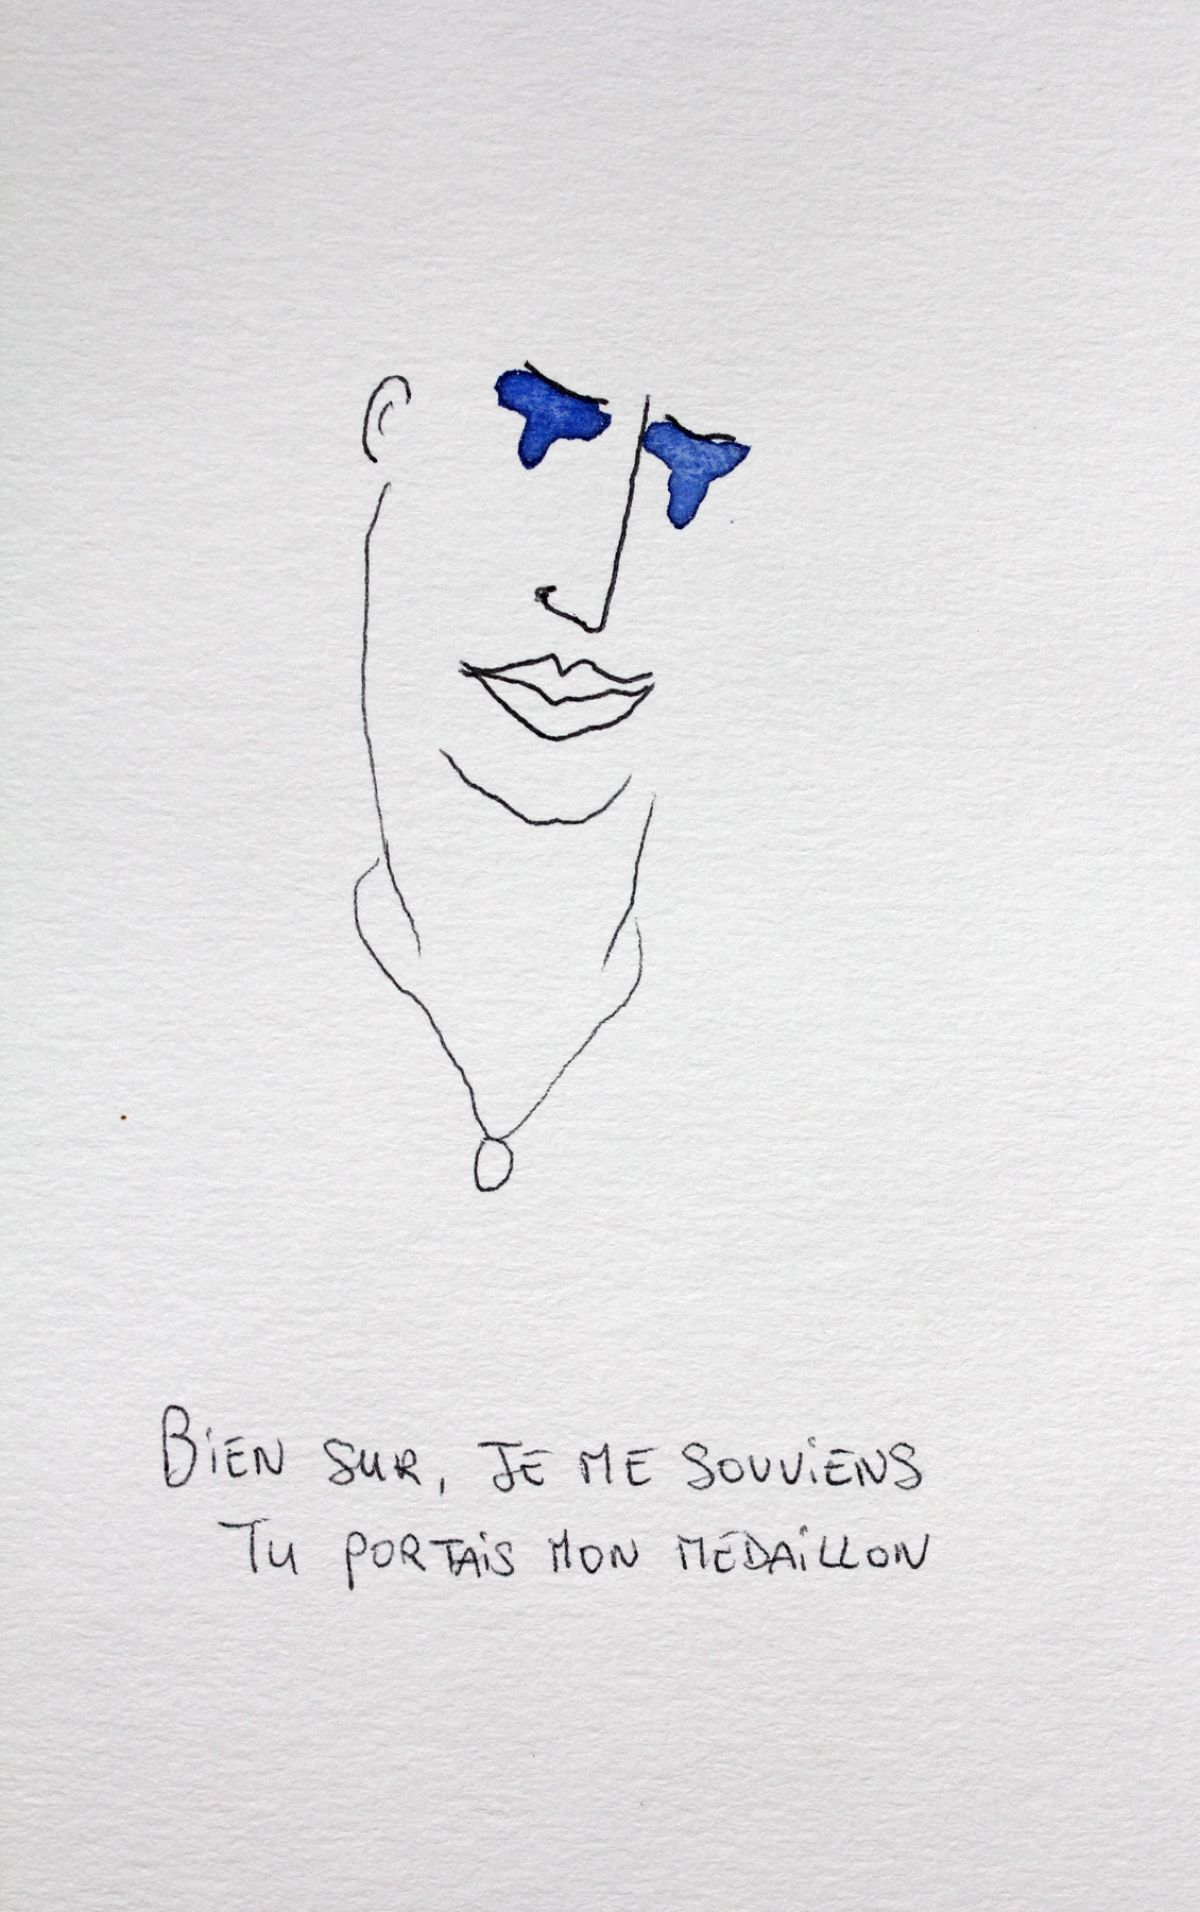 BiEN SUR, JE ME SOUViENS
TU PORTAiS MON MEDAiLLON